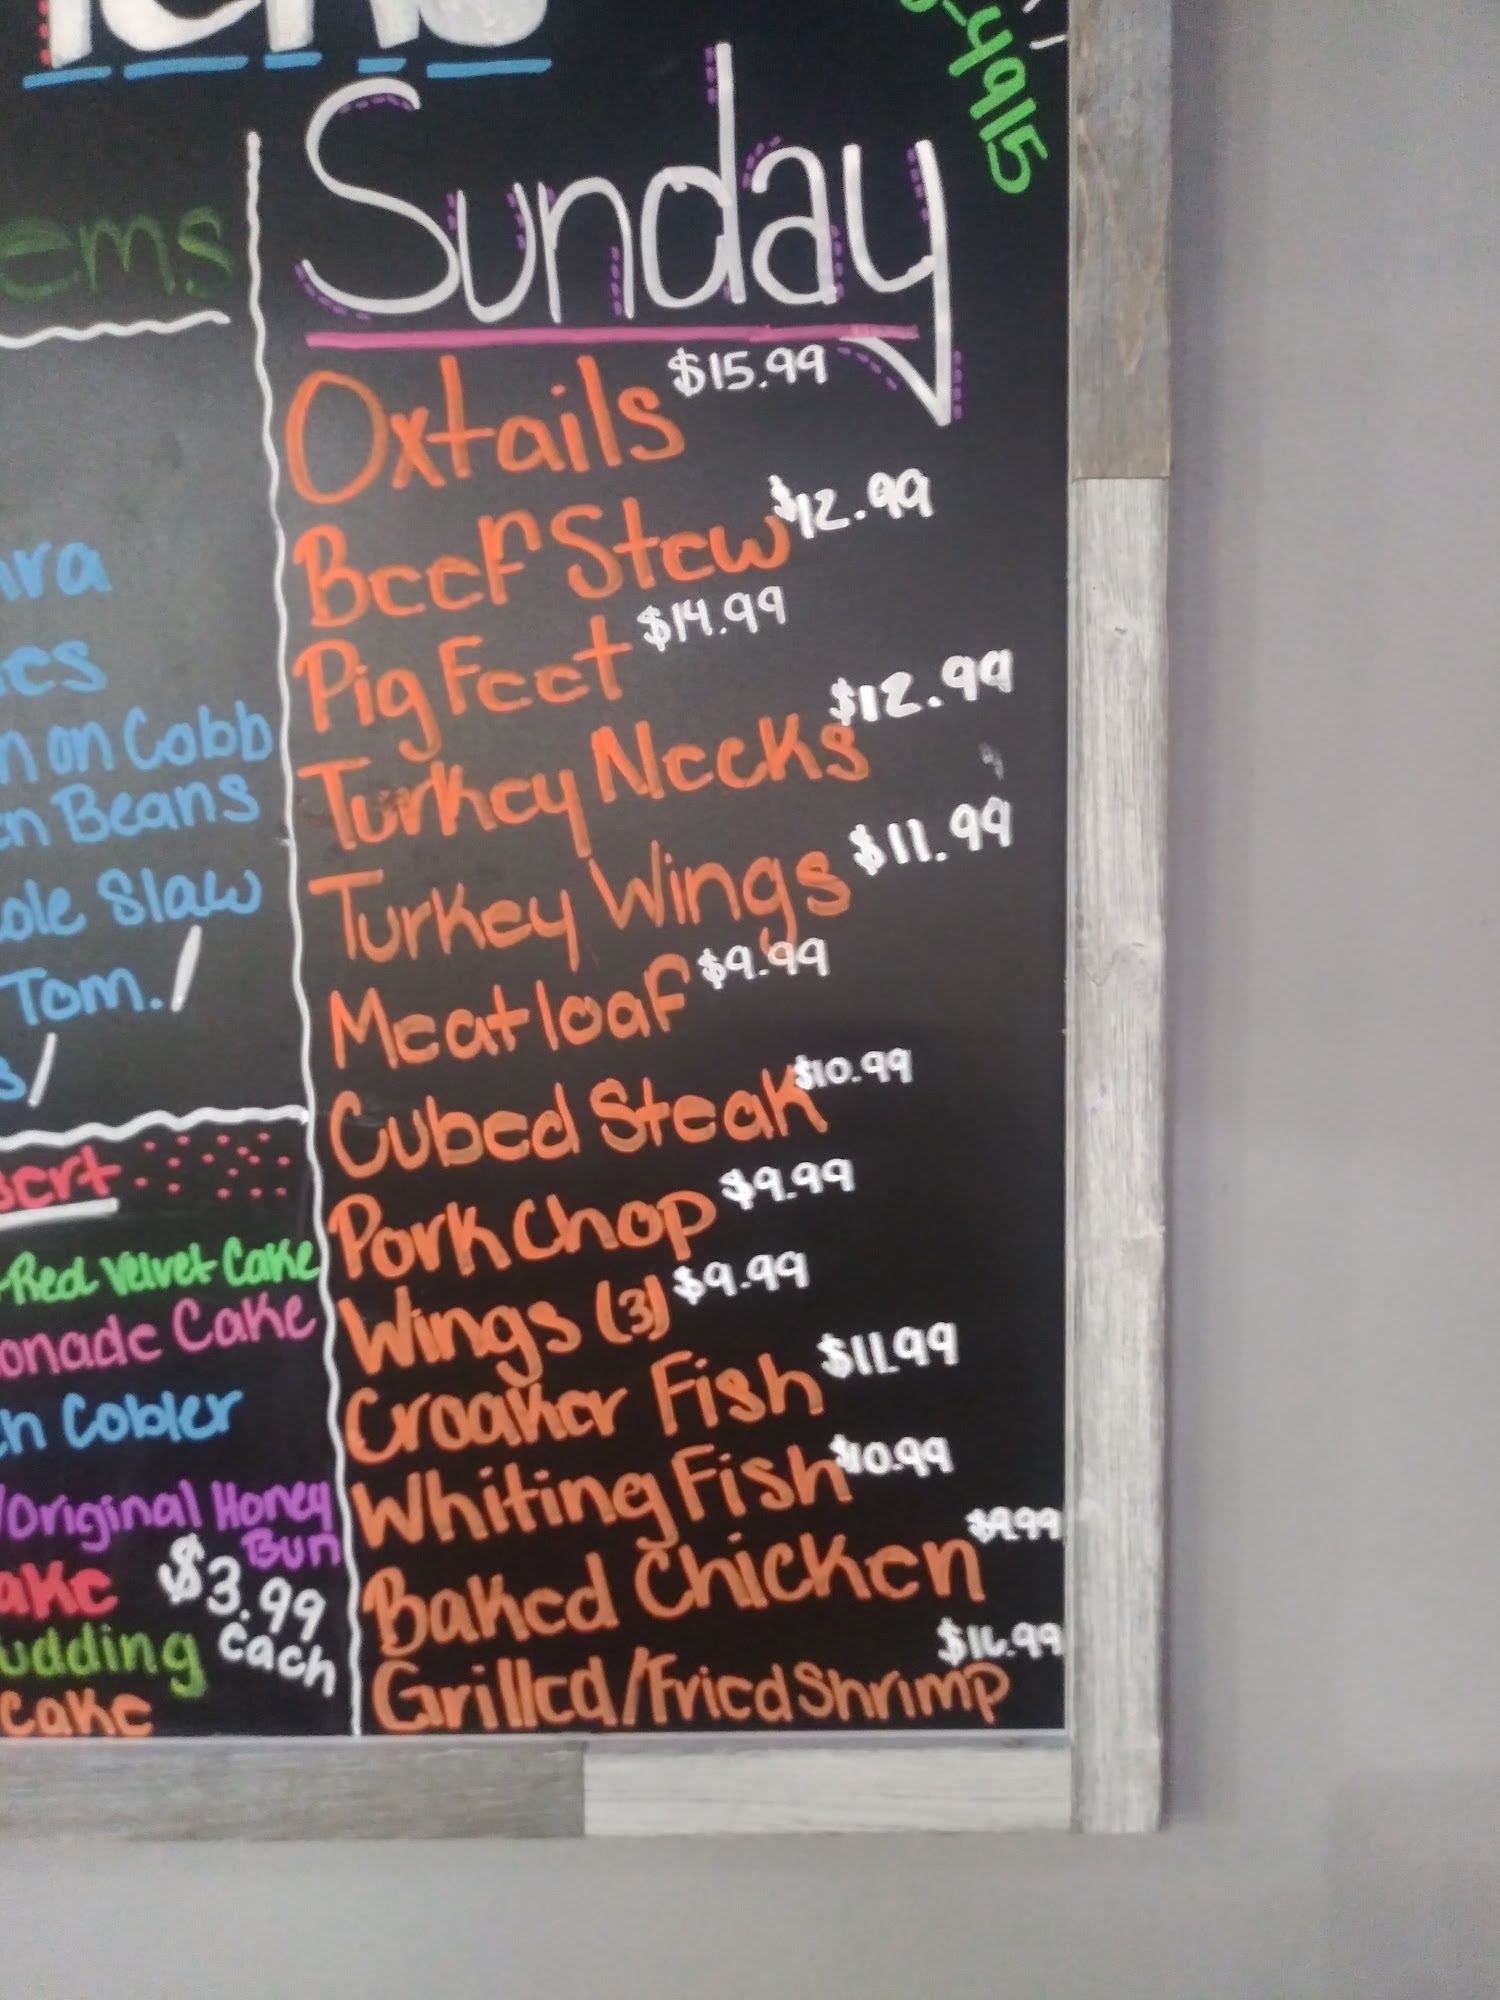 4915
Sunday
Oxtails $15.99
Beef Stew $12.99
Pig Feet $14.99
Turkey Necks $12.99
Turkey Wings $11.99
Meatloaf $9.99
Cubed Steak $10.99
Pork Chop $9.99
Wings (3) $9.99
Croaker Fish $11.99
Whiting Fish $10.99
Baked Chicken $9.99
Grilled/Fried Shrimp
on Cobb
Beans
Slaw
Tom./
Red Velvet Cake
Cake
Cobler
/Original Honey
Bun
$3.99
each